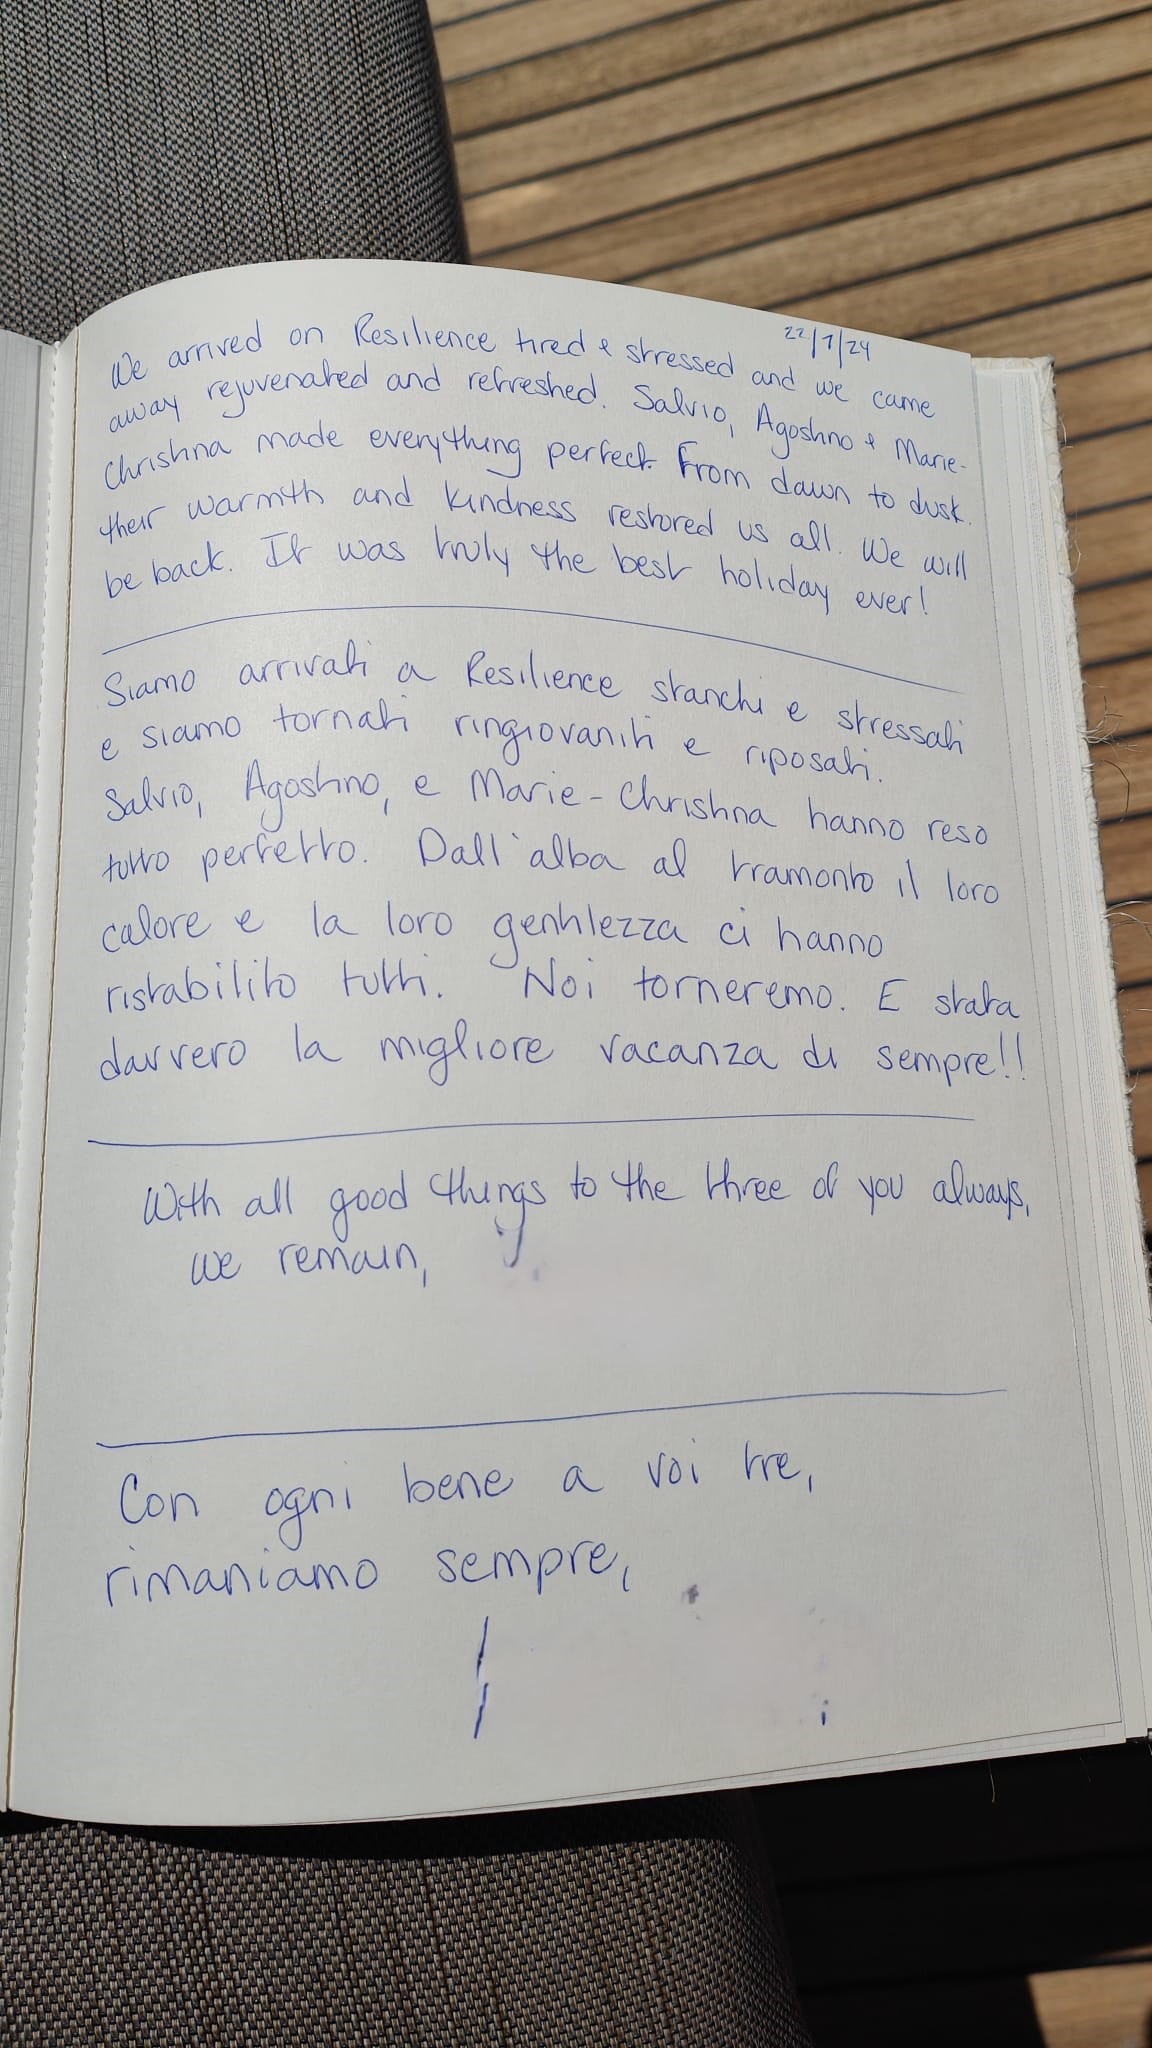 22/7/24
We arrived on Resilience tired & stressed and we came
away rejuvenated and refreshed. Salvio, Agostino & Marie-
Christina made everything perfect. From dawn to dusk.
their warmth and kindness restored us all. We will
be back. It was truly the best holiday ever!
Siamo arrivati a Resilience stanchi e stressati
e siamo tornati ringiovaniti e riposati.
Salvio, Agostino, e Marie-Christina hanno reso
tutto perfetto. Dall'alba al tramonto il loro
calore e la loro gentilezza ci hanno
ristabilito tutti. Noi torneremo. E stata
davvero la migliore vacanza di sempre!!
With all good things to the three of you always,
we remain,
Con ogni bene a voi tre,
rimaniamo sempre,